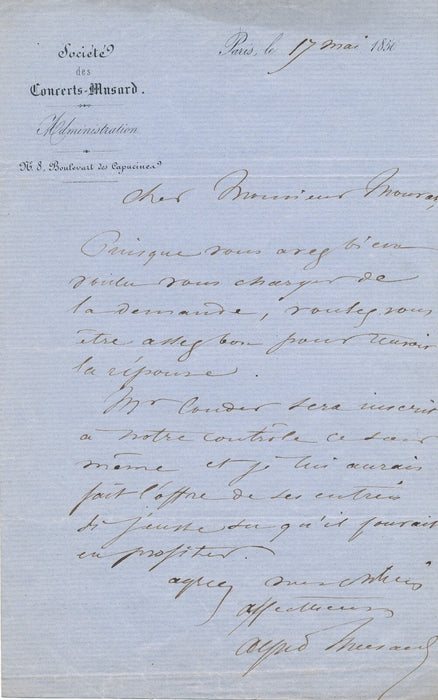 Société
des
Concerts-Musard.
Administration
N. 8, Boulevart des Capucines
Paris, le 17 mai 185
cher Monsieur
Puisque vous avez bien
voulu vous charger de
la demande, voulez vous
être assez bon pour
la réponse.
Mr Couder sera inscrit
à notre contrôle ce soir
même et je lui aurais
fait l'offre de ses entrées
si j'eusse su qu'il pouvait
en profiter.
agréez mes
affectueux
Alfred Musard